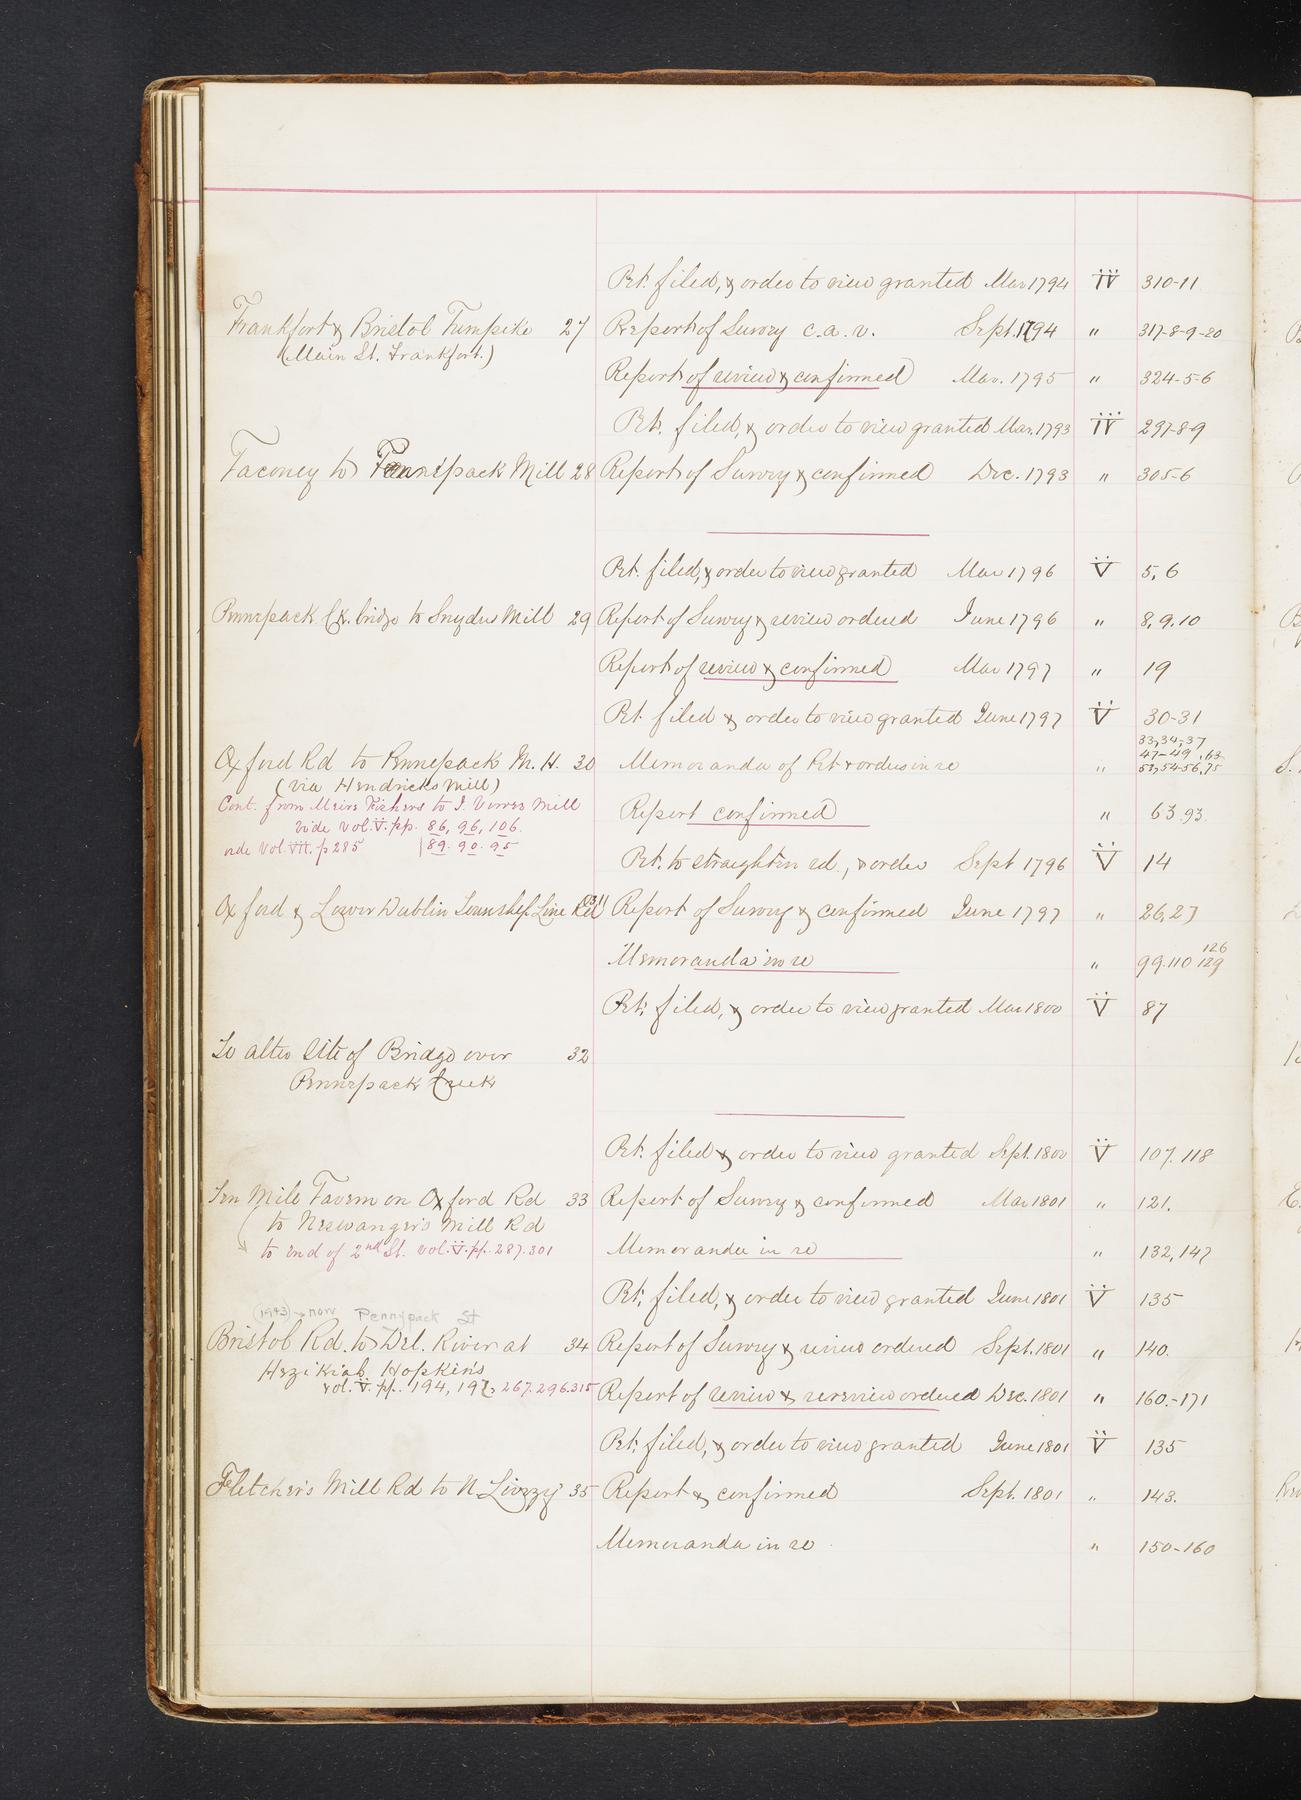 Pet. filed, & order to view granted Mar 1794 IV 310-11
Frankfort & Bristol Turnpike 27 Report of Survey c.a.v. Sept. 1794 " 317-8-9-20
(Main St. Frankfort.)
Report of review & confirmed Mar. 1795 " 324-5-6
Pet. filed, & order to view granted Mar. 1793 IV 297-8-9
Taconey to Pennepack Mill 28 Report of Survey & confirmed Dec. 1793 " 305-6
Pet. filed, & order to view granted Mar 1796 V 5, 6
Pennepack Ck. bridge to Snyders Mill 29 Report of Survey & review ordered June 1796 " 8, 9. 10
Report of review & confirmed Mar 1797 " 19
Pet. filed & order to view granted June 1797 V 30-31
Oxford Rd to Pennepack M. H. 30 Memoranda of Pet & orders in re "
33, 34, 37
47-49, 63
53, 54-56, 75
(via Hendricks Mill)
Cont. from Meirs Fishers to J. Verree Mill
vide vol. V. pp. 86, 96, 106.
vide Vol. VII. p 285 89. 90. 95
Report confirmed " 63. 93.
Pet. to straighten rd., & order Sept 1796 V 14
Oxford & Lower Dublin Township Line Rd 31 Report of Survey & confirmed June 1797 " 26, 27
Memoranda in re " 99. 110 126 129
Pet. filed, & order to view granted Mar 1800 V 87
To alter Site of Bridge over 32
Pennepack Creek
Pet. filed & order to view granted Sept. 1800 V 107. 118
Ten Mile Tavern on Oxford Rd 33 Report of Survey & confirmed Mar 1801 " 121.
to Neswanger's Mill Rd
to end of 2nd St. vol. V. pp. 287. 301
Memoranda in re " 132, 147
Pet. filed, & order to view granted June 1801 V 135
(1943) → now Pennypack St
Bristol Rd. to Del. River at 34 Report of Survey & review ordered Sept. 1801 " 140.
Hezikiah Hopkins
vol. V. pp. 194, 197, 267. 296. 315 Report of review & rereview ordered Dec. 1801 " 160.-171
Pet. filed, & order to view granted June 1801 V 135
Fletcher's Mill Rd to N. Livezey 35 Report & confirmed Sept. 1801 " 143.
Memoranda in re " 150-160